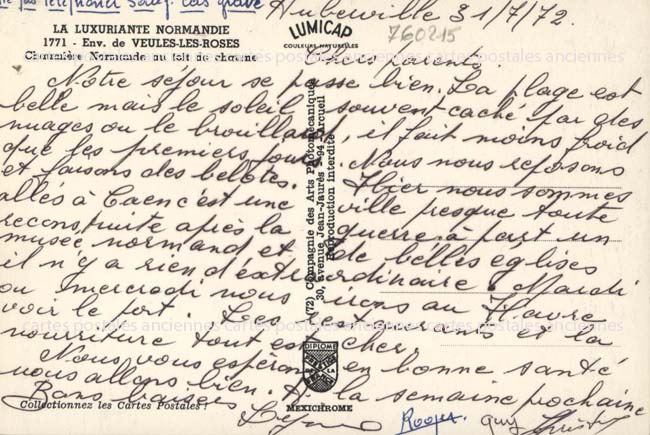 pas téléphoner sauf cas grave
Auberville 31/7/72.
LA LUXURIANTE NORMANDIE
1771 - Env. de VEULES-LES-ROSES
Chaumière Normande au toit de chaume
LUMICAP
COULEURS NATURELLES
760215
Chers parents.
Notre séjour se passe bien. La plage est
belle mais le soleil souvent caché par des
nuages ou le brouillard, il fait moins froid
que les premiers jours. Nous nous reposons
et faisons des belotes. Hier nous sommes
allés à Caen c'est une ville presque toute
reconstruite après la guerre à part un
musée normand et de belles eglises
il n'y a rien d'extraordinaire. Mardi
ou mercredi nous irons au Havre
voir le port. Les restaurants et la
nourriture tout est cher.
Nous vous espérons en bonne santé
nous allons bien. A la semaine prochaine
Bons baisers
Roger Guy
(72) Compagnie des Arts Photomécaniques
30, avenue Jean-Jaurès - 94 - Arcueil
Reproduction interdite
DIPLOME
PRESTIGE
DE LA
FRANCE
MEXICHROME
Collectionnez les Cartes Postales !
cartes postales anciennes cartes postales anciennes cartes postales anciennes
cartes postales anciennes cartes postales anciennes cartes postales anciennes